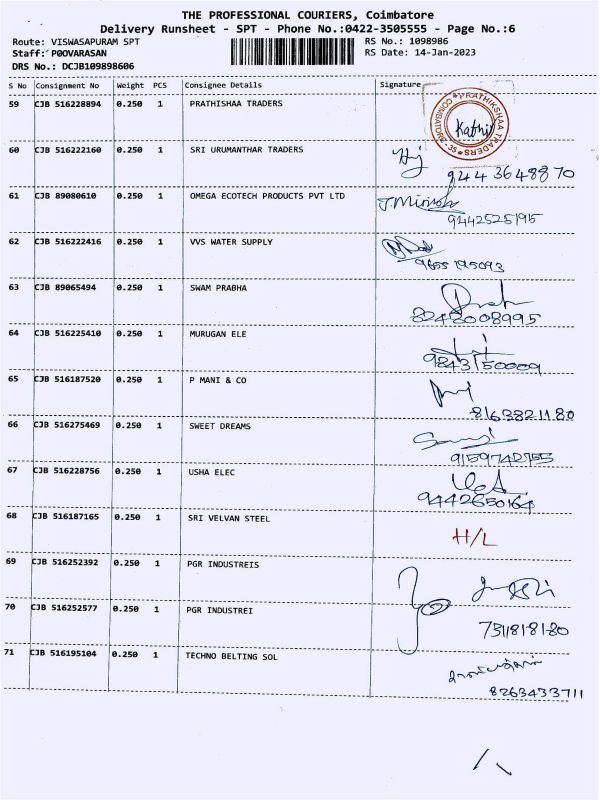 THE PROFESSIONAL COURIERS, Coimbatore
Delivery Runsheet - SPT - Phone No.:0422-3505555 - Page No.:6
Route: VISWASAPURAM SPT RS No.: 1098986
Staff: POOVARASAN RS Date: 14-Jan-2023
DRS No.: DCJB109898606
S No Consignment No Weight PCS Consignee Details Signature
59 CJB 516228894 0.250 1 PRATHISHAA TRADERS
PRATHIKSHAA TRADERS
Kathir
60 CJB 516222160 0.250 1 SRI URUMANTHAR TRADERS
9443648870
61 CJB 89080610 0.250 1 OMEGA ECOTECH PRODUCTS PVT LTD
9442525195
62 CJB 516222416 0.250 1 VVS WATER SUPPLY
9655195093
63 CJB 89065494 0.250 1 SWAM PRABHA
8248008995
64 CJB 516225410 0.250 1 MURUGAN ELE
9843150009
65 CJB 516187520 0.250 1 P MANI & CO
8163821180
66 CJB 516275469 0.250 1 SWEET DREAMS
9159742755
67 CJB 516228756 0.250 1 USHA ELEC
9442650164
68 CJB 516187165 0.250 1 SRI VELVAN STEEL H/L
69 CJB 516252392 0.250 1 PGR INDUSTREIS
70 CJB 516252577 0.250 1 PGR INDUSTREI
7311818180
71 CJB 516195104 0.250 1 TECHNO BELTING SOL
8263433711